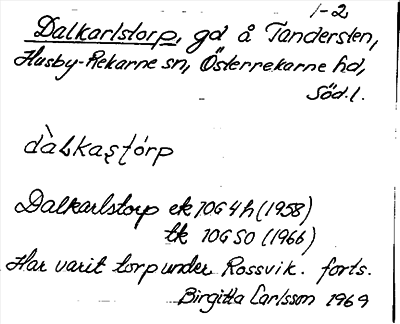 1-2
Dalkarlstorp, gd å Tandersten,
Husby-Rekarne sn, Österrekarne hd,
Söd.l.
Dalkarlstorp ek 10G4h (1958)
tk 10G SO (1966)
Har varit torp under Rossvik. forts.
Birgitta Carlsson 1969